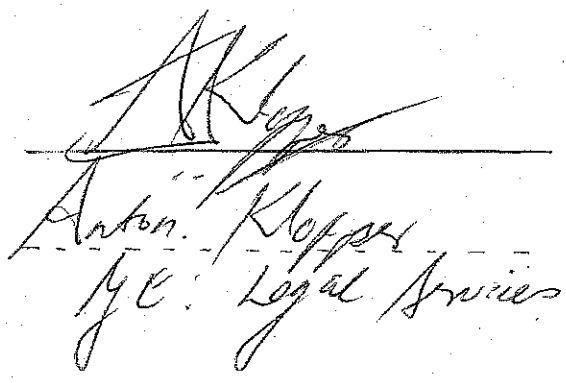 AKlopper
Anton. Klopper
Legal Services